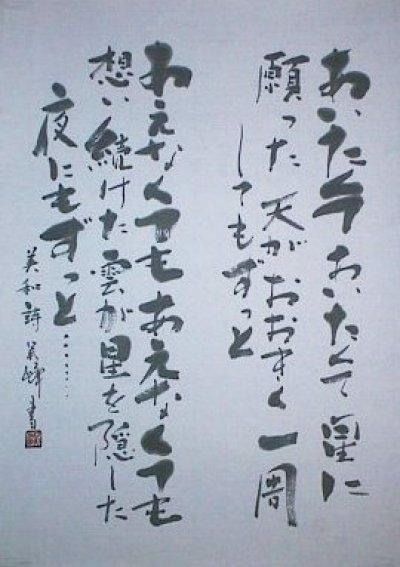 あいたくて あいたくて 星に
願った 天がおおきく一周
してもずっと
あえなくても あえなくても
想い続けた 雲が星を隠した
夜にもずっと……
美和 詩 美峰 書